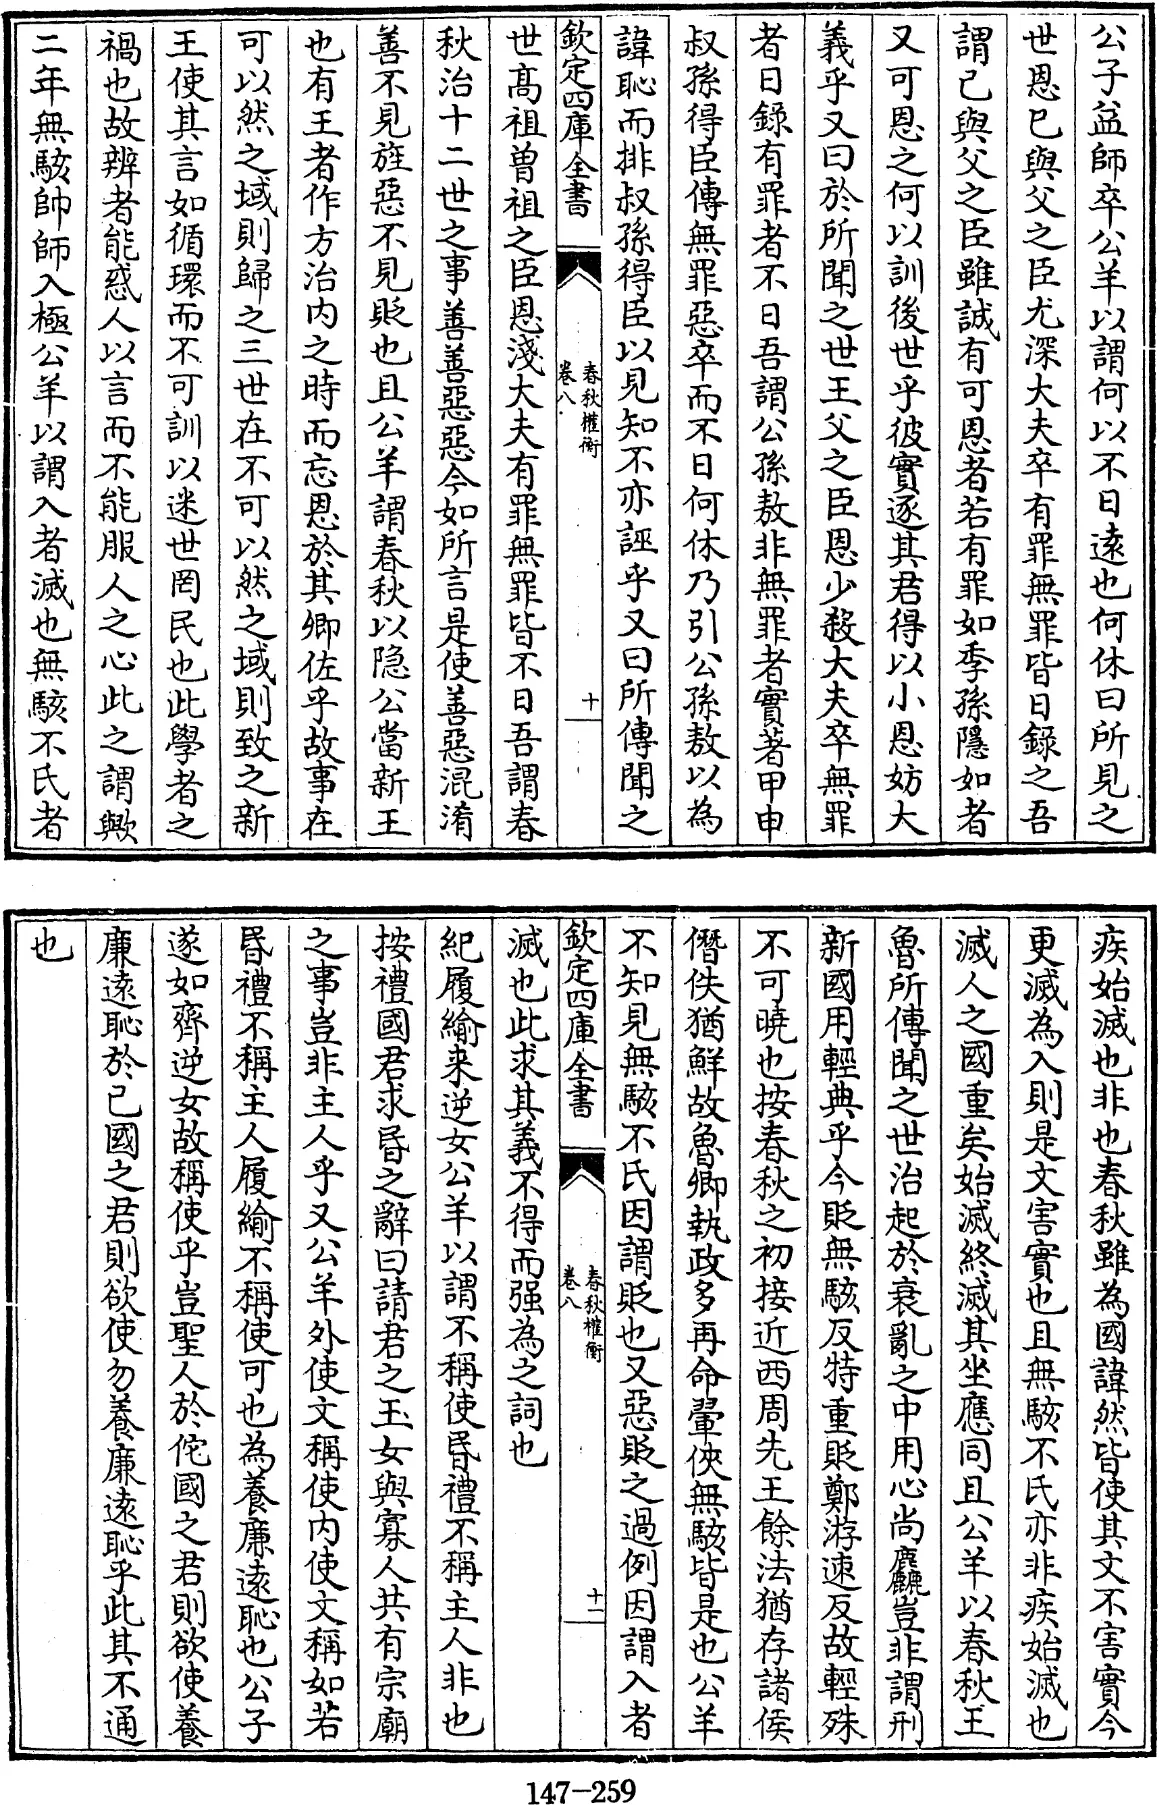 公子益師卒公羊以謂何以不日遠也何休曰所見之
世恩已與父之臣尤深大夫卒有罪無罪皆日錄之吾
謂已與父之臣雖誠有可恩者若有罪如季孫隱如者
又可恩之何以訓後世乎彼實逐其君得以小恩妨大
義乎又曰於所聞之世王父之臣恩少殺大夫卒無罪
者日錄有罪者不日吾謂公孫敖非無罪者實著甲申
叔孫得臣傳無罪惡卒而不日何休乃引公孫敖以為
諱恥而排叔孫得臣以見知不亦誣乎又曰所傳聞之
欽定四庫全書
春秋權衡
卷八
十
世高祖曽祖之臣恩淺大夫有罪無罪皆不日吾謂春
秋治十二世之事善善惡惡今如所言是使善惡混淆
善不見旌惡不見貶也且公羊謂春秋以隐公當新王
也有王者作方治内之時而忘恩於其卿佐乎故事在
可以然之域則歸之三世在不可以然之域則致之新
王使其言如循環而不可訓以迷世罔民也此學者之
禍也故辨者能惑人以言而不能服人之心此之謂歟
二年無駭帥師入極公羊以謂入者滅也無駭不氏者
疾始滅也非也春秋雖為國諱然皆使其文不害實今
更滅為入則是文害實也且無駭不氏亦非疾始滅也
滅人之國重矣始滅終滅其坐應同且公羊以春秋王
魯所傳聞之世治起於衰亂之中用心尚麤豈非謂刑
新國用輕典乎今貶無駭反特重貶鄭游速反故輕殊
不可曉也按春秋之初接近西周先王餘法猶存諸侯
僭佚猶鮮故魯卿執政多再命翬俠無駭皆是也公羊
不知見無駭不氏因謂貶也又惡貶之過例因謂入者
欽定四庫全書
春秋權衡
卷八
十一
滅也此求其義不得而强為之詞也
紀履緰来逆女公羊以謂不稱使昏禮不稱主人非也
按禮國君求昏之辭曰請君之玉女與寡人共有宗廟
之事豈非主人乎又公羊外使文稱使内使文稱如若
昏禮不稱主人履緰不稱使可也為養廉逺恥也公子
遂如齊逆女故稱使乎豈聖人於佗國之君則欲使養
廉逺恥於已國之君則欲使勿養廉逺恥乎此其不通
也
147-259